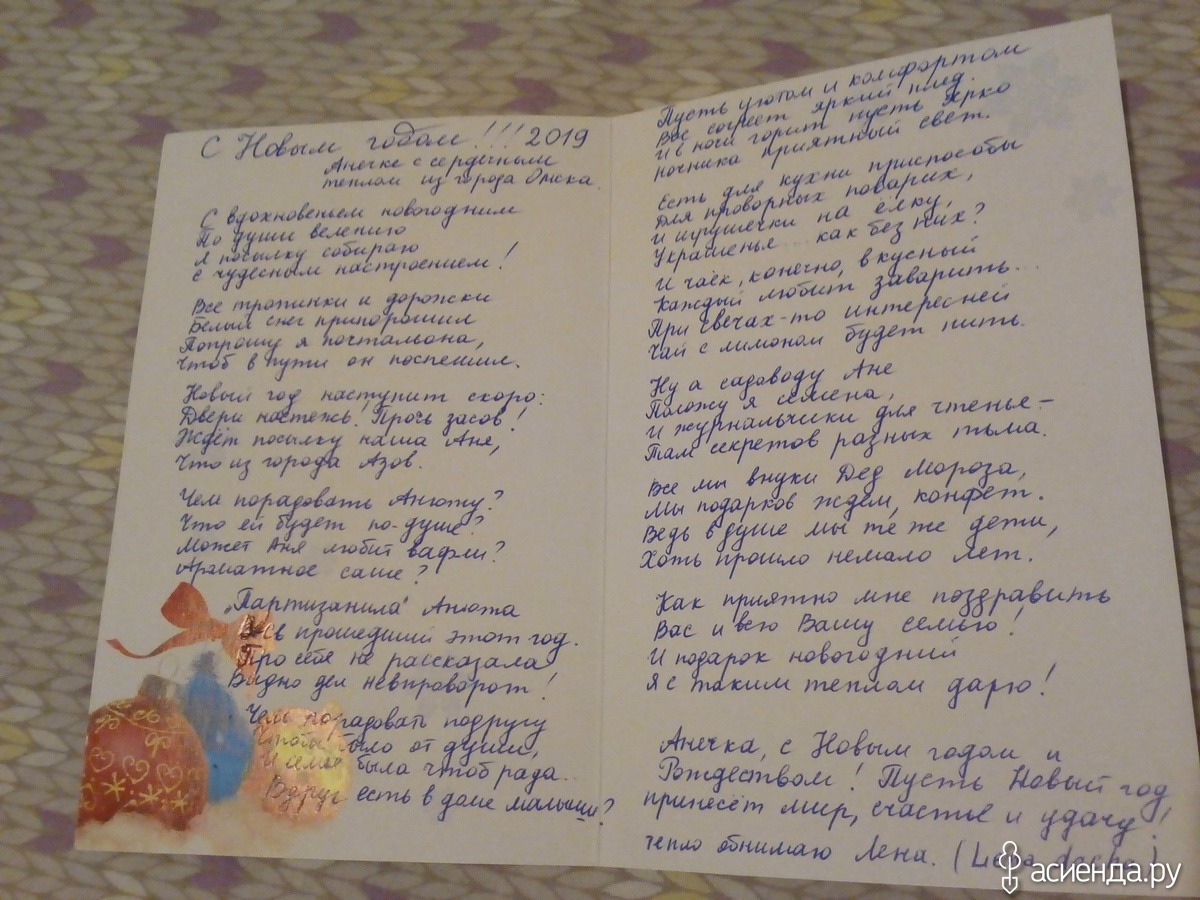 С Новым годом!!! 2019
Анечке с сердечным
теплом из города Омска.
С вдохновеньем новогодним
По души велению
Я посылку собираю
С чудесным настроением!
Все тропинки и дорожки
Белый снег припорошил
Попрошу я почтальона,
Чтоб в пути он поспешил.
Новый год наступит скоро:
Двери настежь! Прочь засов!
Ждёт посылку наша Аня,
Что из города Азов.
Чем порадовать Анюту?
Что ей будет по-душе?
Может Аня любит вафли?
Ароматное саше?
„Партизанила" Анюта
Весь прошедший этот год.
Про себя не рассказала
Видно дел невпроворот!
Чем порадовать подругу
Чтобы было от души,
И семья была чтоб рада...
Вдруг есть в доме малыши?
Пусть уютом и комфортом
Вас согреет яркий плед.
И в ночи горит пусть ярко
Ночника приятный свет.
Есть для кухни приспособы
Для проворных поварих,
И игрушечки на ёлку,
Украшенье... как без них?
И чаёк, конечно, вкусный
Каждый любит заварить...
При свечах-то интересней
Чай с лимоном будет пить.
Ну а садоводу Ане
Положу я семена,
И журнальчики для чтенья-
Там секретов разных тьма.
Все мы внуки Дед Мороза,
Мы подарков ждём, конфет.
Ведь в душе мы те же дети,
Хоть прошло немало лет.
Как приятно мне поздравить
Вас и всю Вашу семью!
И подарок новогодний
Я с таким теплом дарю!
Анечка, с Новым годом и
Рождеством! Пусть Новый год
принесёт мир, счастье и удачу!
тепло обнимаю Лена. (
асиенда.ру